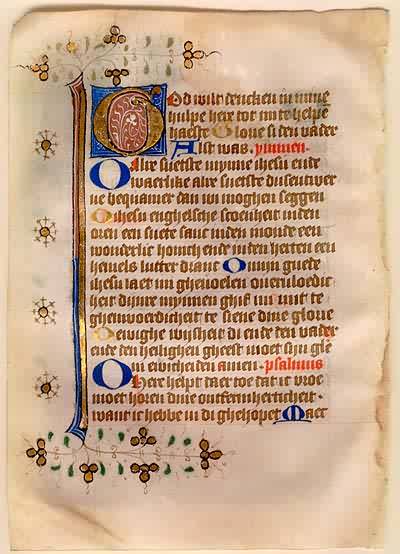 God wilt dencken in mine
hulpe here tot mi te helpe
haeste Glorie si den vader
Alst was. ymnen.
O Alre suetste mynne ihesu ende
waerlike alre suetste dusentwer
ue bequamer dan wi moghen seggen
O ihesu enghelsche scoenheit inden
oren een suete sanc inden monde een
wonderlic honich ende inden herten een
hemels lutter dranc O mijn guede
ihesu laet mi gheuoelen oueruloedic
heit dijnre mynnen ghif mi mit te
ghenwoerdicheit te siene dine glorie
O ewighe wijsheit di ende den vader
ende den heilighen gheest moet sijn glo
in ewicheiden amen. psalmus
O Here helpt daer toe dat ic
moet horen dine ontfermherticheit.
want ic hebbe in di ghehopet Maect